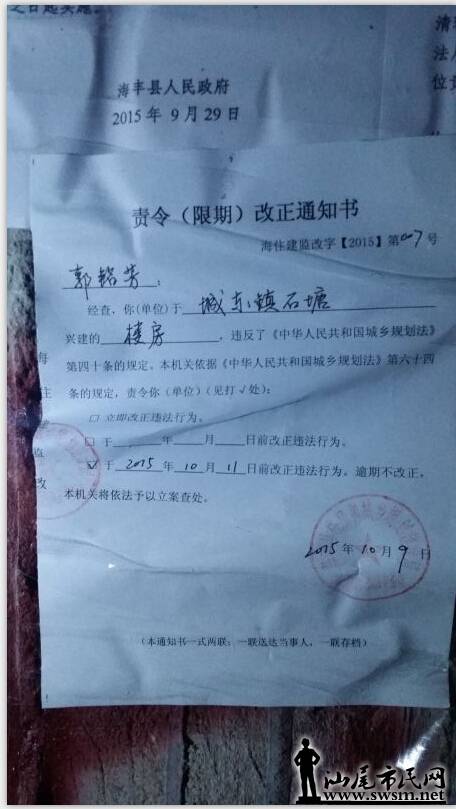 之日起实施。
海丰县人民政府
2015年9月29日
清
法人
位责
责令（限期）改正通知书
海住建监改字【2015】第007号
郭铭芳：
经查，你(单位)于 城东镇石塘
兴建的 楼房 ，违反了《中华人民共和国城乡规划法》
第四十条的规定。本机关依据《中华人民共和国城乡规划法》第六十四
条的规定，责令你（单位）（见打√处）：
□ 立即改正违法行为。
□ 于 年 月 日前改正违法行为。
☑ 于 2015 年 10 月 11 日前改正违法行为。逾期不改正，
本机关将依法予以立案查处。
2015年10月9日
（本通知书一式两联：一联送达当事人，一联存档）
海
住
建
监
改
汕尾市民网
www.swsm.net